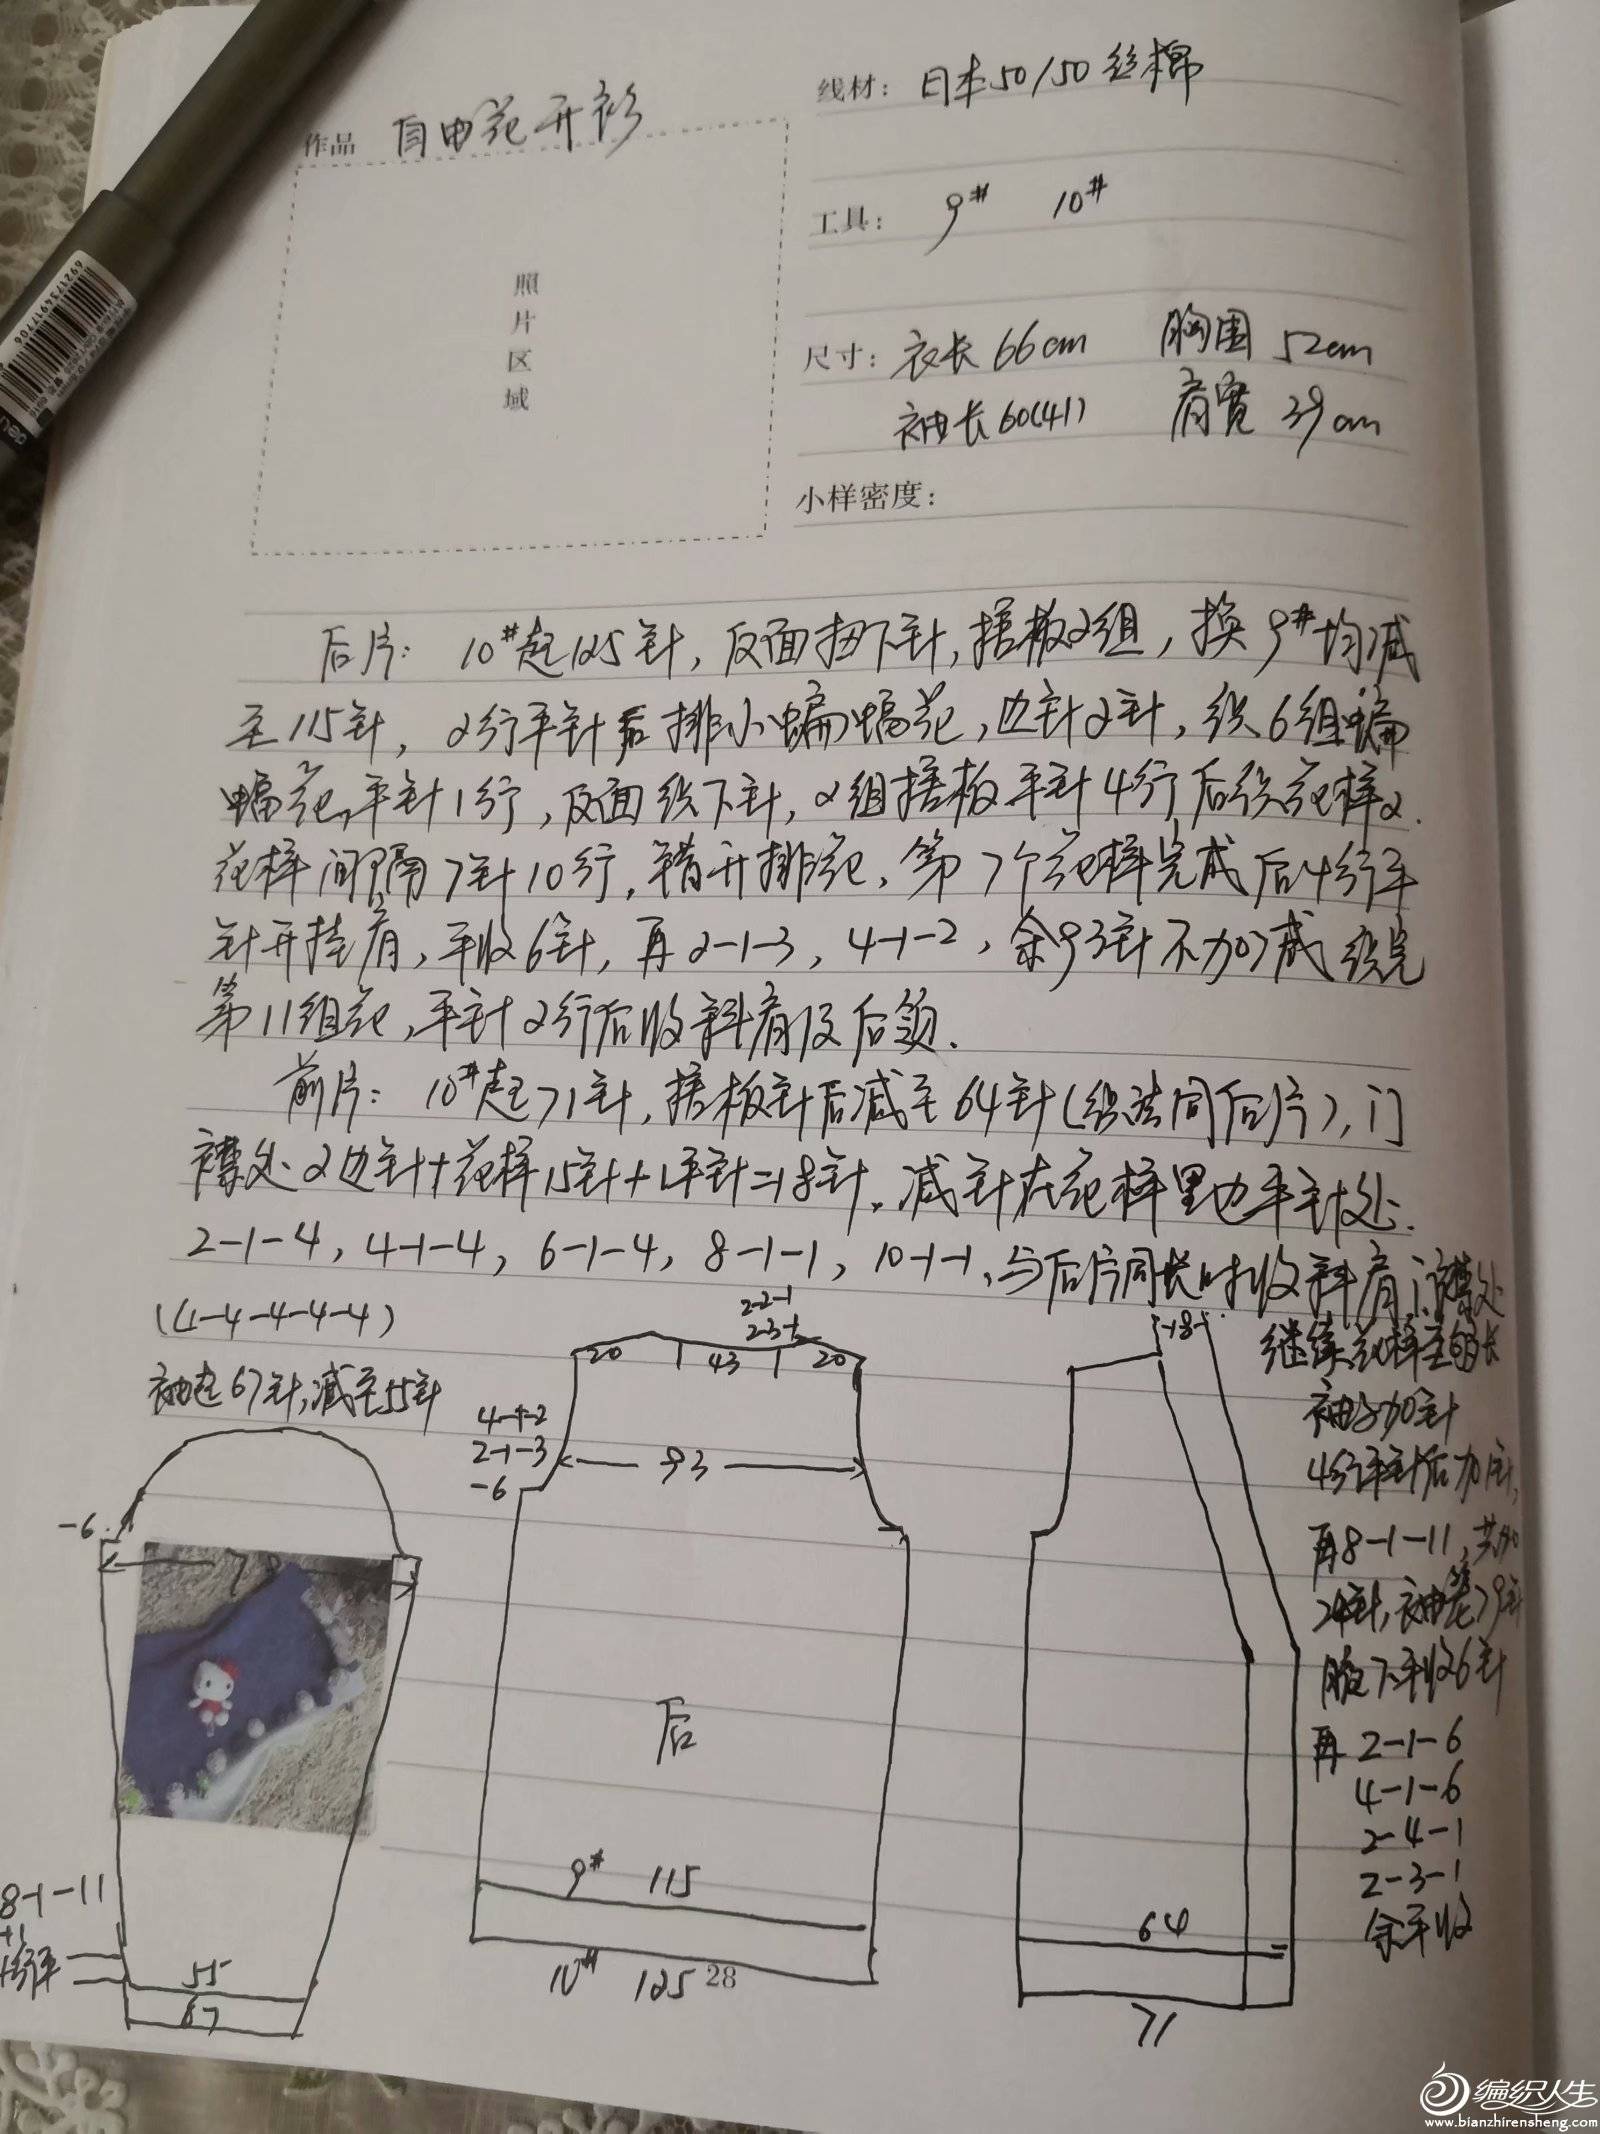 作品 自由花开衫
线材: 日本50/50丝棉
工具: 9# 10#
照片区域
尺寸: 衣长66cm 胸围52cm
袖长60(41) 肩宽39cm
小样密度:
后片: 10#起125针, 反面扭下针, 搓板2组, 换9#均减
至115针, 2行平针后排小蝙蝠花, 边针2针, 织6组蝙
蝠花, 平针1行, 反面织下针, 2组搓板平针4行后织花样2.
花样间隔7针10行, 错开排花, 第7个花样完成后4行平
针开挂肩, 平收6针, 再2-1-3, 4-1-2, 余93针不加减织完
第11组花, 平针2行后收斜肩及后领.
前片: 10#起71针, 搓板针后减至64针(织法同后片), 门
襟处2边针+花样15针+1平针=18针. 减针在花样里边平针处.
2-1-4, 4-1-4, 6-1-4, 8-1-1, 10-1-1, 与后片同长时收斜肩门襟处
继续花样至够长
(4-4-4-4-4)
袖起67针, 减至55针
袖子加针
4行平针后加1针,
再8-1-11, 共加
24针, 袖笼79针
腋下平收6针
再 2-1-6
4-1-6
2-4-1
2-3-1
余平收
2-2-1
2-3-1
20 43 20
4-1-2
2-1-3
-6
93
后
9# 115
10# 125
28
-18-
64
71
-6
8-1-11
+1
55
67
6921734917706
deli
编织人生
www.bianzhirensheng.com